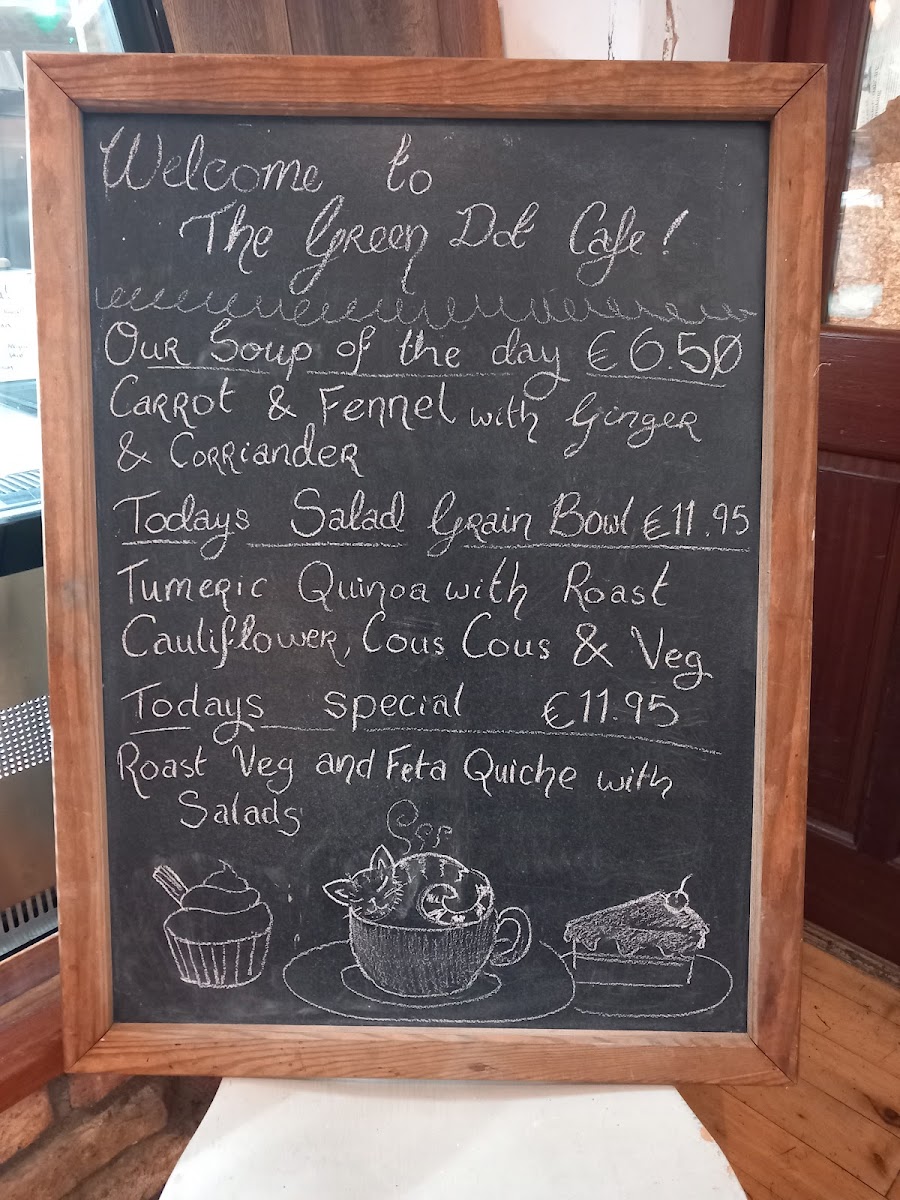 Welcome to
The Green Dot Cafe!
Our Soup of the day €6.50
Carrot & Fennel with Ginger
& Corriander
Todays Salad Grain Bowl €11.95
Tumeric Quinoa with Roast
Cauliflower, Cous Cous & Veg
Todays special €11.95
Roast Veg and Feta Quiche with
Salads